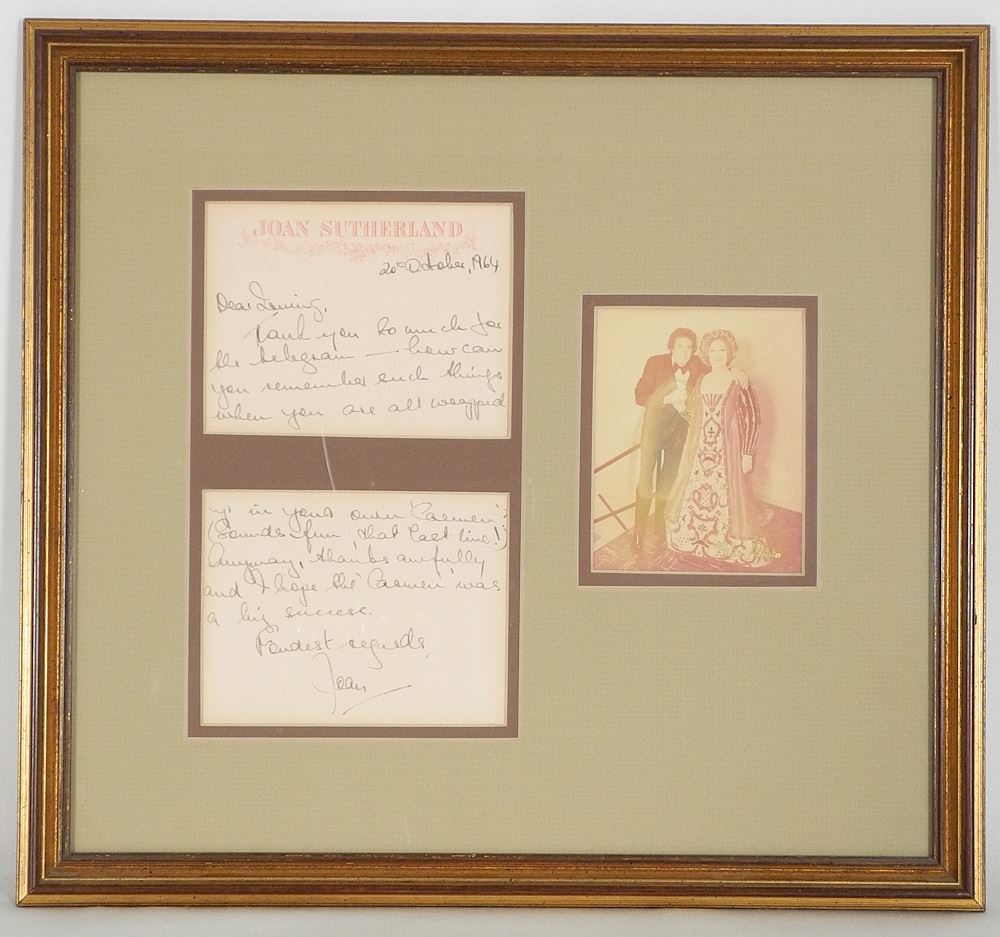 JOAN SUTHERLAND
20th October, 1964
Dear Irving,
Thank you so much for
the telegram — how can
you remember such things
when you are all wrapped
up in your own 'Carmen'?
(Sounds fun, that last line!)
Anyway, thanks awfully
and I hope the 'Carmen' was
a big success.
Fondest regards,
Joan